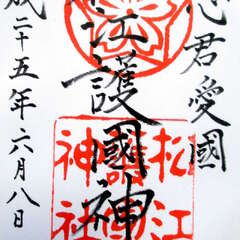 忠君愛國
江護國神
成二十五年六月八日
松江
神社